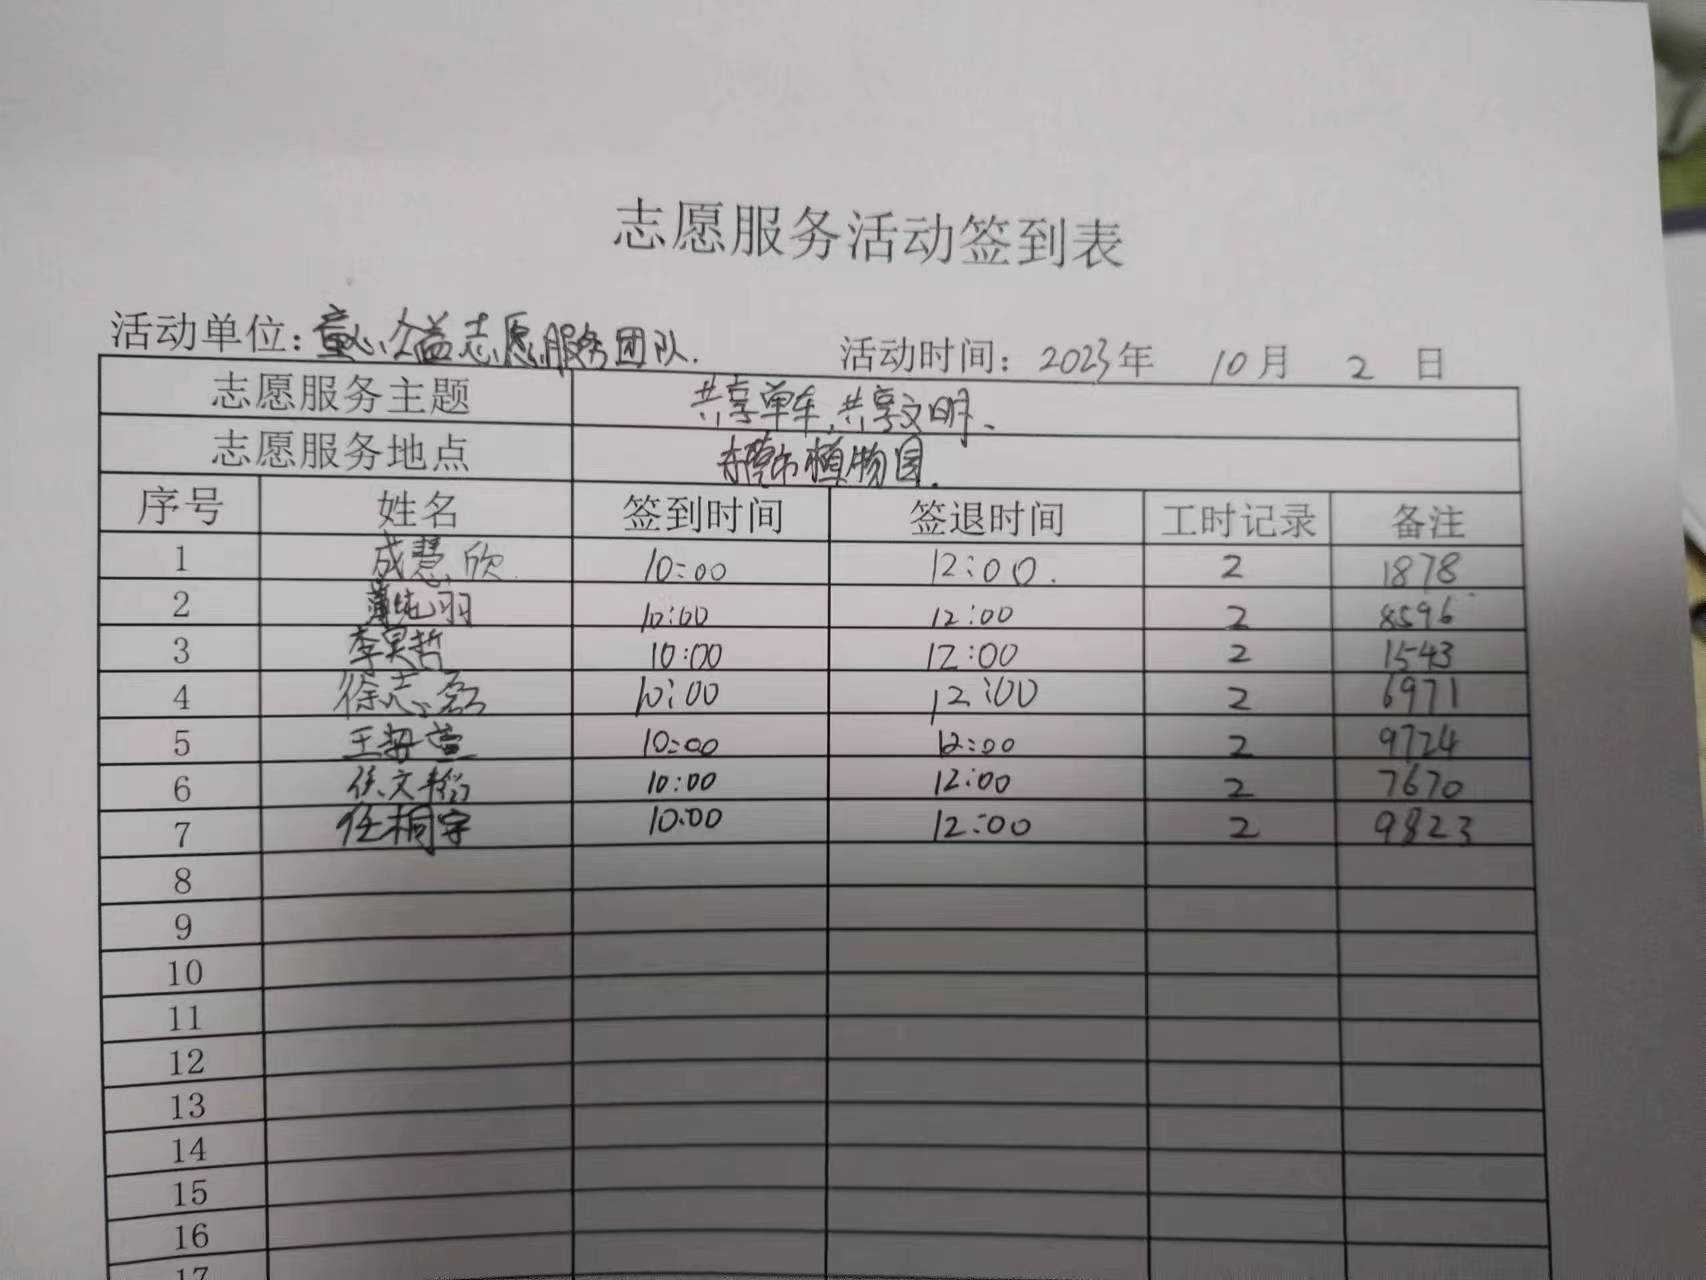 志愿服务活动签到表
活动单位：童心公益志愿服务团队. 活动时间：2023年 10月 2 日
志愿服务主题 共享单车,共享文明、
志愿服务地点 植物园.
序号 姓名 签到时间 签退时间 工时记录 备注
1 成慧欣 10:00 12:00. 2 1878
2 羽 10:00 12:00 2 8596
3 李昊哲 10:00 12:00 2 1543
4 徐志磊 10:00 12:00 2 6971
5 王 萱 10:00 12:00 2 9724
6 文 10:00 12:00 2 7670
7 任桐宇 10:00 12:00 2 9823
8
9
10
11
12
13
14
15
16
17